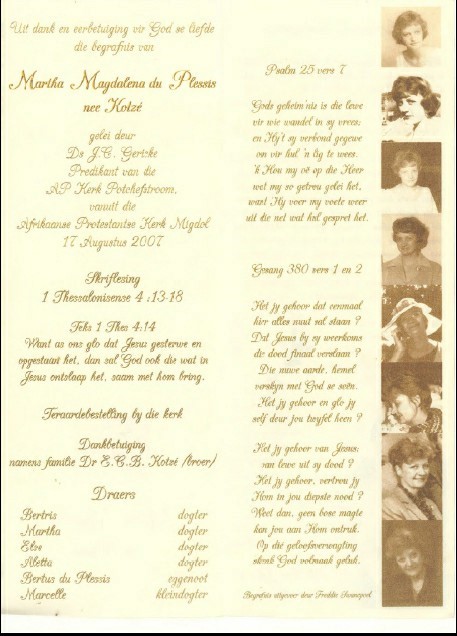 Uit dank en eerbetuiging vir God se liefde
die begrafnis van
Martha Magdalena du Plessis
nee Kotzé
gelei deur
Ds J.G. Gericke
Predikant van die
AP Kerk Potchefstroom,
vanuit die
Afrikaanse Protestantse Kerk Migdol
17 Augustus 2007
Skriflesing
1 Thessalonisense 4 :13-18
Teks 1 Thes 4:14
Want as ons glo dat Jesus gesterwe en
opgestaan het, dan sal God ook die wat in
Jesus ontslaap het, saam met hom bring.
Teraardebestelling by die kerk
Dankbetuiging
namens familie Dr E.G.B. Kotzé (broer)
Draers
Bertris dogter
Martha dogter
Else dogter
Aletta dogter
Bertus du Plessis eggenoot
Marcelle kleindogter
Psalm 25 vers 7
Gods geheim'nis is die lewe
vir wie wandel in sy vrees;
en Hy't sy verbond gegewe
om vir hul 'n lig te wees.
'k Hou my oë op die Heer
wat my so getrou gelei het,
want Hy voer my voete weer
uit die net wat hul gespret het.
Gesang 380 vers 1 en 2
Het jy gehoor dat eenmaal
hier alles nuut sal staan ?
Dat Jesus by sy weerkoms
die dood finaal verslaan ?
Die nuwe aarde, hemel
verskyn met God se seën.
Het jy gehoor en glo jy
self deur jou twyfel heen ?
Het jy gehoor van Jesus:
van lewe uit sy dood ?
Het jy gehoor, vertrou jy
Hom in jou diepste nood ?
Weet dan, geen bose magte
kan jou aan Hom ontruk.
Op die geloofsverwagting
skenk God volmaak geluk.
Begrafnis uitgevoer deur Freddie